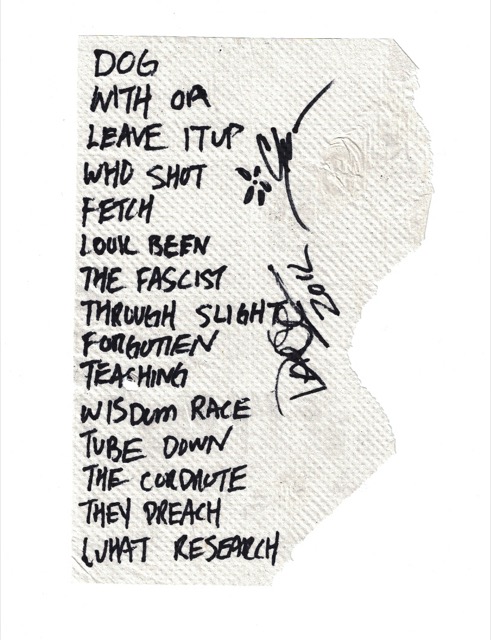 DOG
WITH OR
LEAVE IT UP
WHO SHOT
FETCH
LOUK BEEN
THE FASCIST
THROUGH SLIGHT
FORGOTTEN
TEACHING
WISDOM RACE
TUBE DOWN
THE CORDROTE
THEY PREACH
WHAT RESEARCH
2012